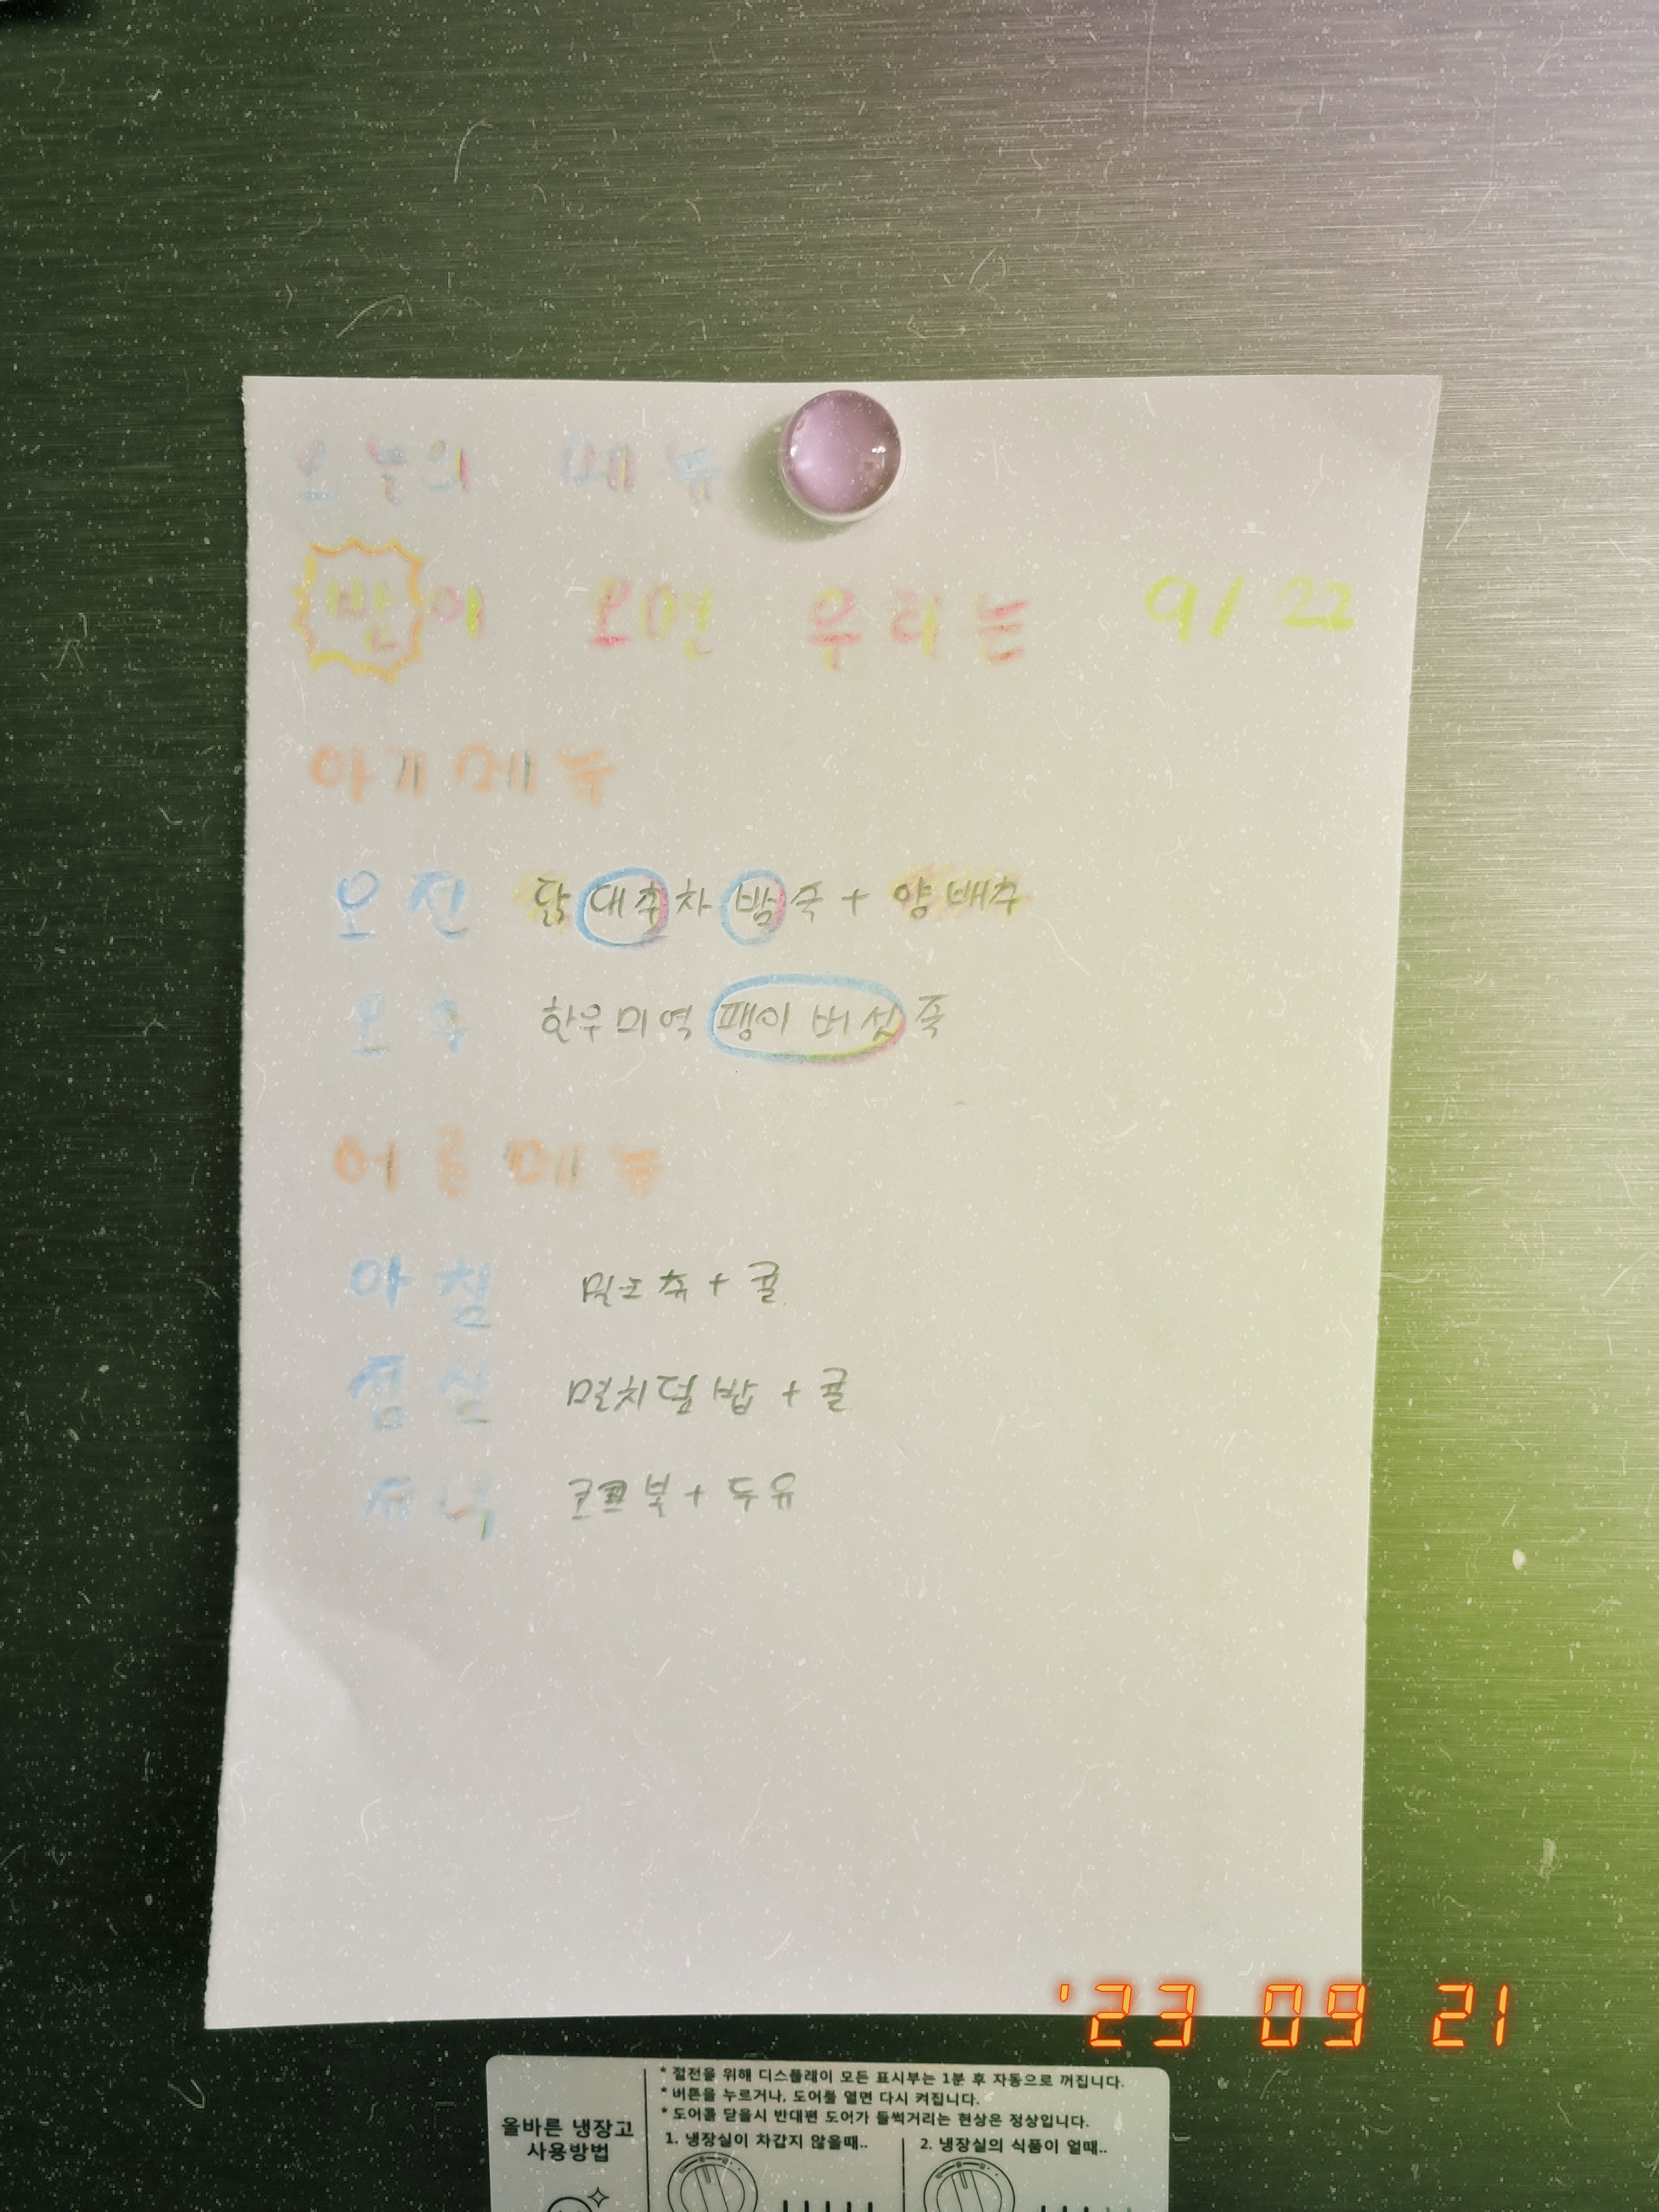 오늘의 메뉴
밤이 오면 우리는 9/22
아기메뉴
오전 닭대추차밤죽 + 양배추
오후 한우미역팽이버섯죽
어른메뉴
아침 + 귤
점심 멸치덮밥 + 귤
저녁 + 두유
'23 09 21
올바른 냉장고
사용방법
* 절전을 위해 디스플레이 모든 표시부는 1분 후 자동으로 꺼집니다.
* 버튼을 누르거나, 도어를 열면 다시 켜집니다.
* 도어를 닫을시 반대편 도어가 들썩거리는 현상은 정상입니다.
1. 냉장실이 차갑지 않을때..
2. 냉장실의 식품이 얼때..